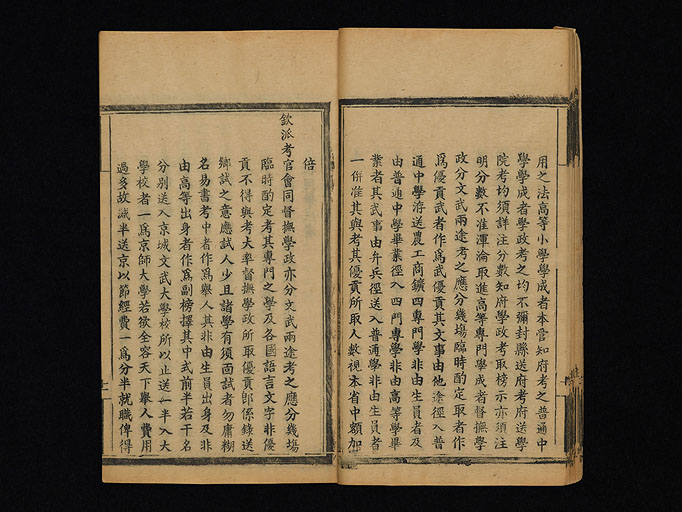 用之法高等小學學成者本管知府考之普通中
學學成者學政考之均不彌封縣送府考府送學
院考均須詳注分數知府學政考取榜示亦須注
明分數不准渾淪取進高等專門學成者督撫學
政分文武兩途考之應分幾塲臨時酌定取者作
爲優貢武者作爲武優貢其文事由他途徑入普
通中學游送農工商鑛四專門學非由生員者及
由普通中學畢業徑入四門專學非由高等學畢
業者其武事由弁兵徑送入普通學非由生員者
一併准其與考其優貢所取人數視本省中額加
倍
欽派考官會同督撫學政亦分文武兩途考之應分幾塲
臨時酌定考其專門之學及各國語言文字非優
貢不得與考大率督撫學政所取優貢即係錄送
鄉試之意應試人少且諸學有須面試者勿庸糊
名易書考中者作爲舉人其非由生員出身及非
由高等出身者作爲副榜擇其中式前半若干名
分別送入京城文武大學校所以止送一半入大
學校者一爲京師大學若欲全容天下舉人費用
過多故減半送京以節經費一爲分半就職俾得